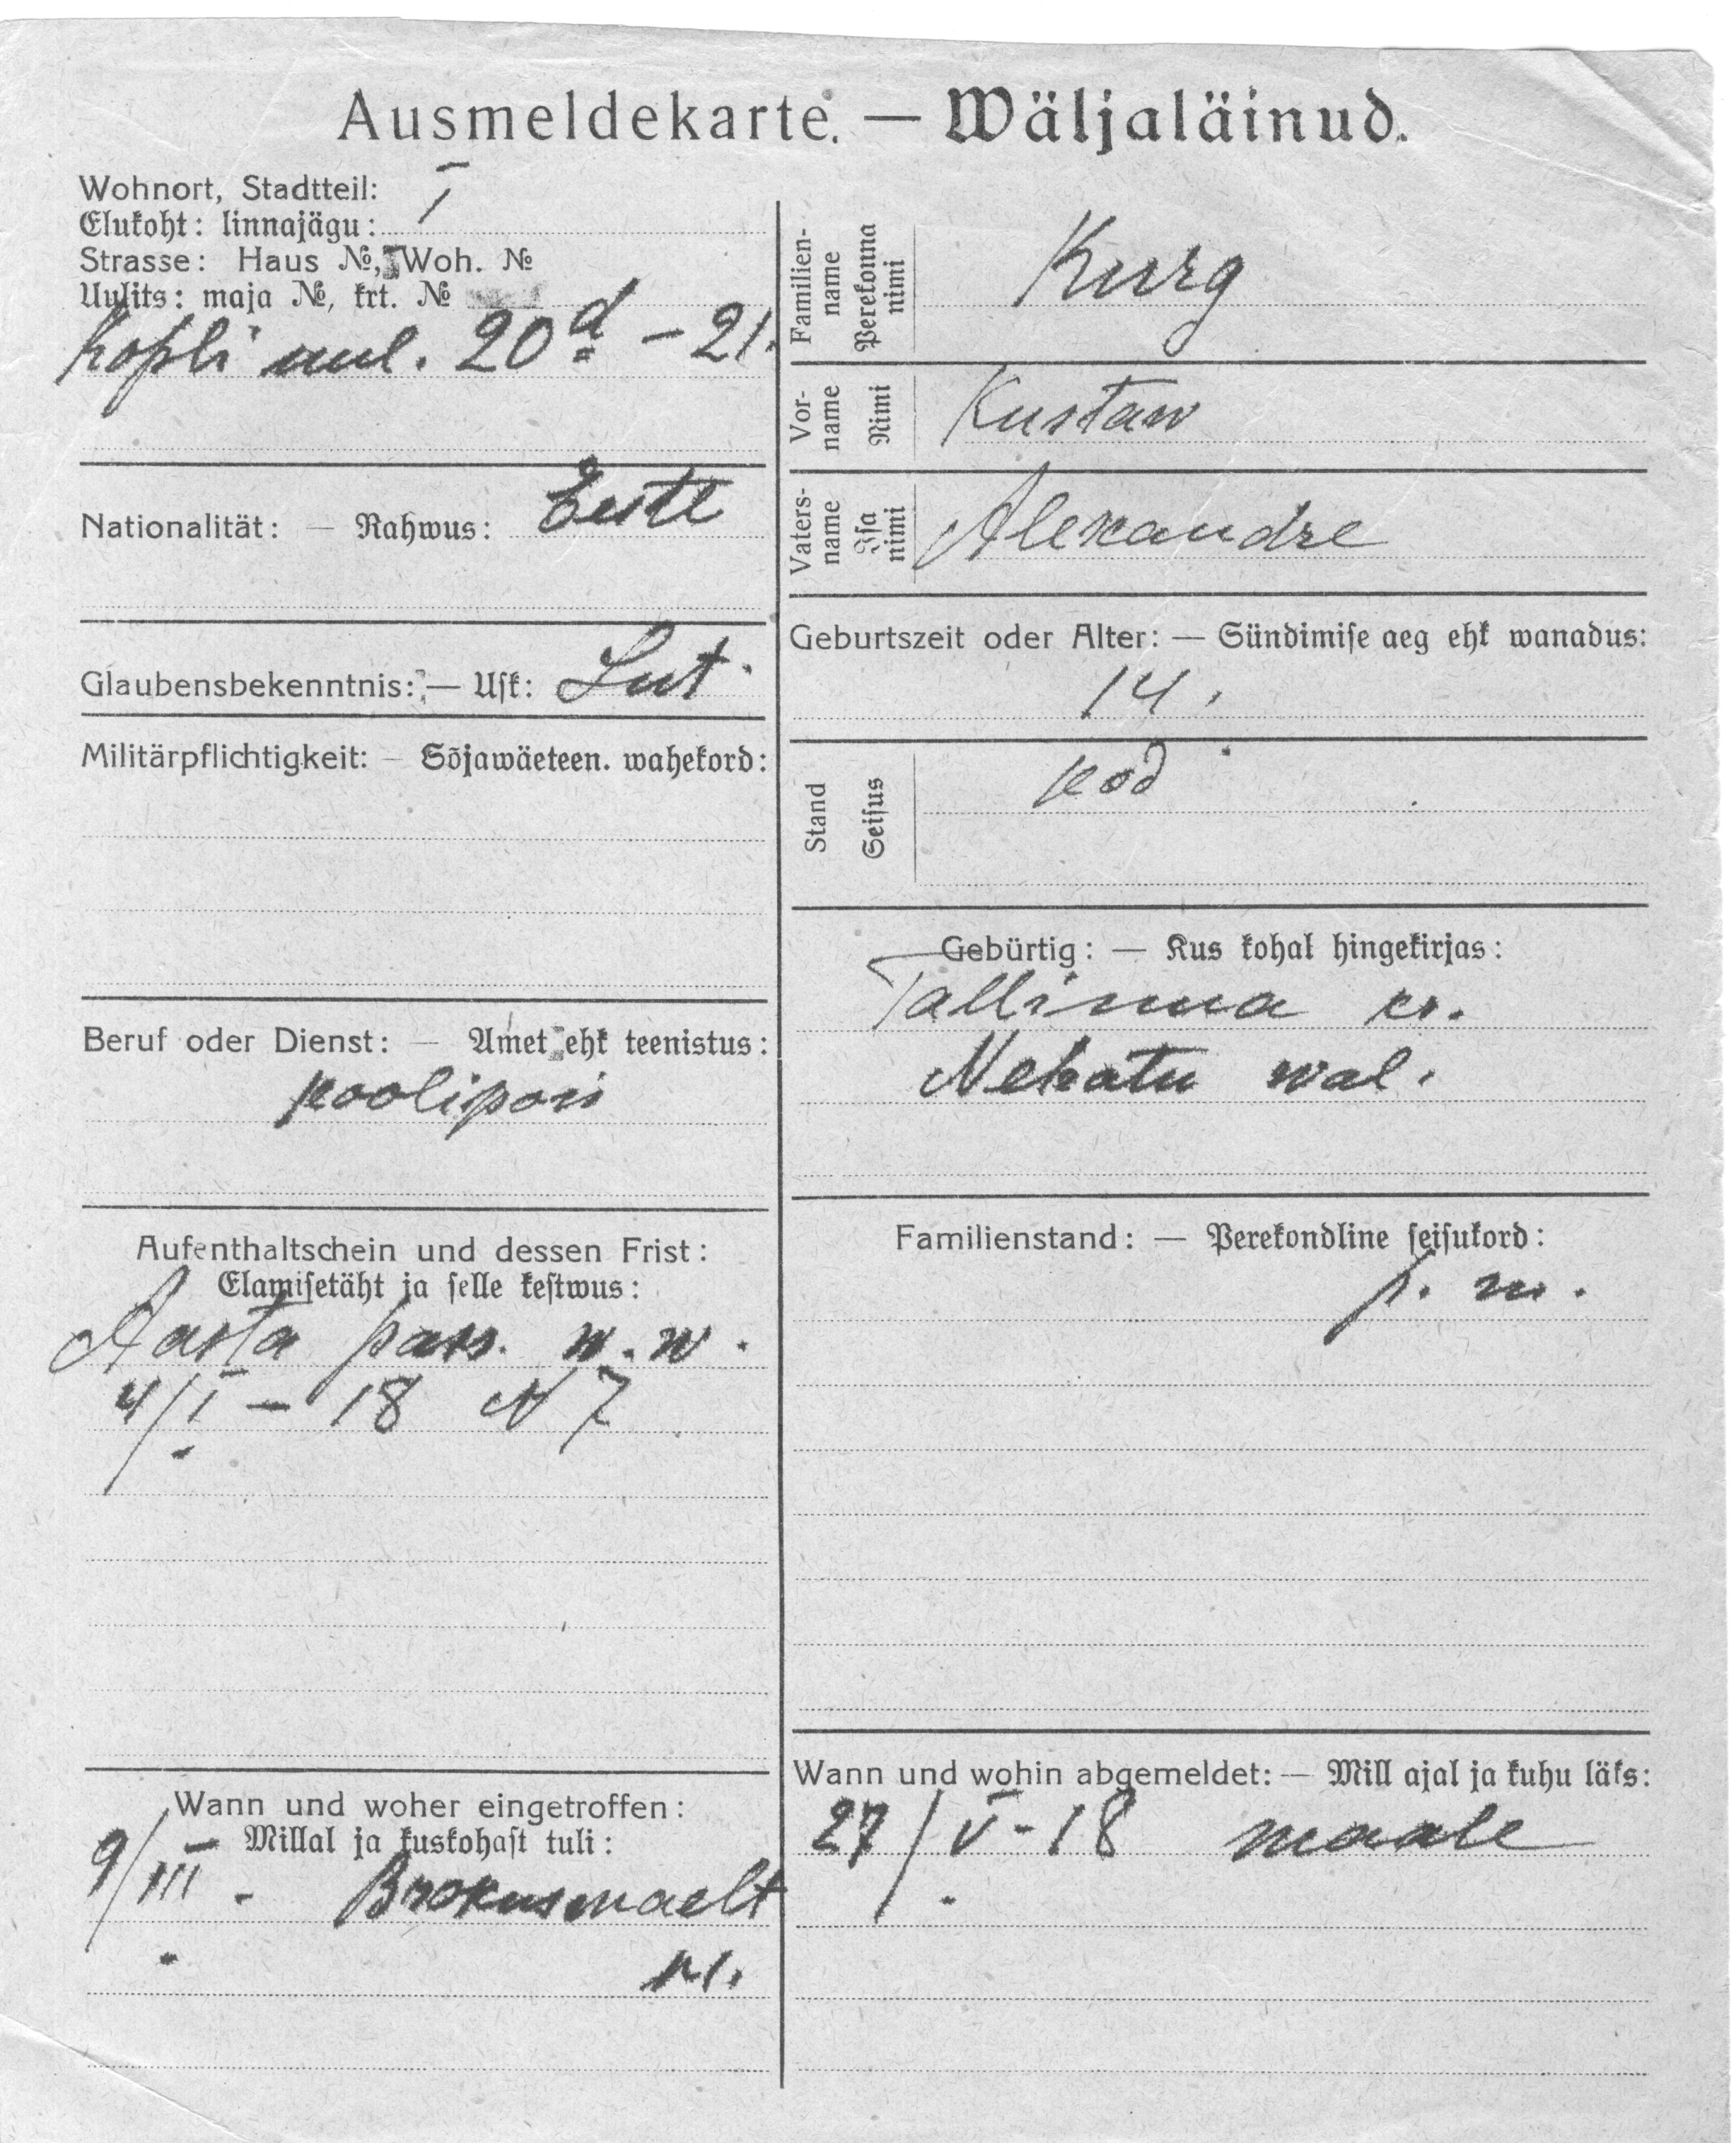 Ausmeldekarte. — Wäljaläinud.
Wohnort, Stadtteil:
Elukoht: linnajägu: I
Strasse: Haus №, Woh. №
Uulits: maja №, krt. №
Kopli uul. 20d – 21.
Nationalität: — Rahwus: Eestl
Glaubensbekenntnis: — Usk: Lut.
Militärpflichtigkeit: — Sõjawäeteen. wahekord:
Beruf oder Dienst: — Amet ehk teenistus:
koolipois
Aufenthaltschein und dessen Frist:
Elamisetäht ja selle kestwus:
Aasta pass. w.w.
4/I – 18 N 7
Wann und woher eingetroffen:
Millal ja kuskohast tuli:
9/III.
Familien-
name
Perekonna
nimi
Kurg
Vor-
name
Nimi
Kustaw
Vaters-
name
Isa
nimi
Alexandre
Geburtszeit oder Alter: — Sündimise aeg ehk wanadus:
14.
Stand
Seisus
kod
Gebürtig: — Kus kohal hingekirjas:
Tallinna kr.
Nehatu wal.
Familienstand: — Perekondline seisukord:
p. m.
Wann und wohin abgemeldet: — Mill ajal ja kuhu läks:
27/V-18 maale